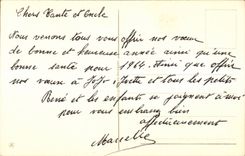 Chers Tante et Oncle
Nous venons tous vous offrir nos vœux
de bonne et heureuse année ainsi qu'une
bonne santé pour 1964. Ainsi que offrir
nos vœux à JoJo. et tous les petits
René et les enfants se joignent à moi
pour vous embrasser bien
affectueusement
Marcelle